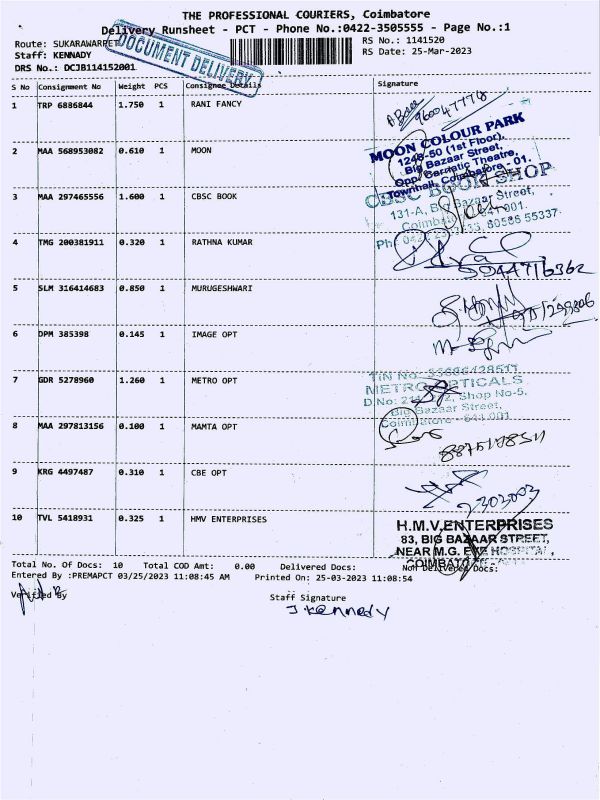 THE PROFESSIONAL COURIERS, Coimbatore
Delivery Runsheet - PCT - Phone No.:0422-3505555 - Page No.:1
Route: SUKARAWARPET
RS No.: 1141520
Staff: KENNADY
RS Date: 25-Mar-2023
DRS No.: DCJB114152001
DOCUMENT DELIVERY
S No Consignment No Weight PCS Consignee Details Signature
1 TRP 6886844 1.750 1 RANI FANCY
9600477778
2 MAA 568953082 0.610 1 MOON
MOON COLOUR PARK
1248-50 (1st Floor),
Big Bazaar Street,
Opp. Carnatic Theatre,
Townhall, Coimbatore - 01.
3 MAA 297465556 1.600 1 CBSC BOOK
CBSC BOOK SHOP
131-A, Big Bazaar Street,
4 TMG 200381911 0.320 1 RATHNA KUMAR
5 SLM 316414683 0.850 1 MURUGESHWARI
6 DPM 385398 0.145 1 IMAGE OPT
7 GDR 5278960 1.260 1 METRO OPT
METRO OPTICALS
Shop No-5.
Big Bazaar Street,
Coimbatore - 641 001
8 MAA 297813156 0.100 1 MAMTA OPT
9 KRG 4497487 0.310 1 CBE OPT
2303003
10 TVL 5418931 0.325 1 HMV ENTERPRISES
H.M.V.ENTERPRISES
83, BIG BAZAAR STREET,
NEAR M.G. EYE HOSPITAL,
Total No. Of Docs: 10 Total COD Amt: 0.00 Delivered Docs: Non Delivered Docs:
Entered By :PREMAPCT 03/25/2023 11:08:45 AM Printed On: 25-03-2023 11:08:54
Verified By
Staff Signature
J Kennady